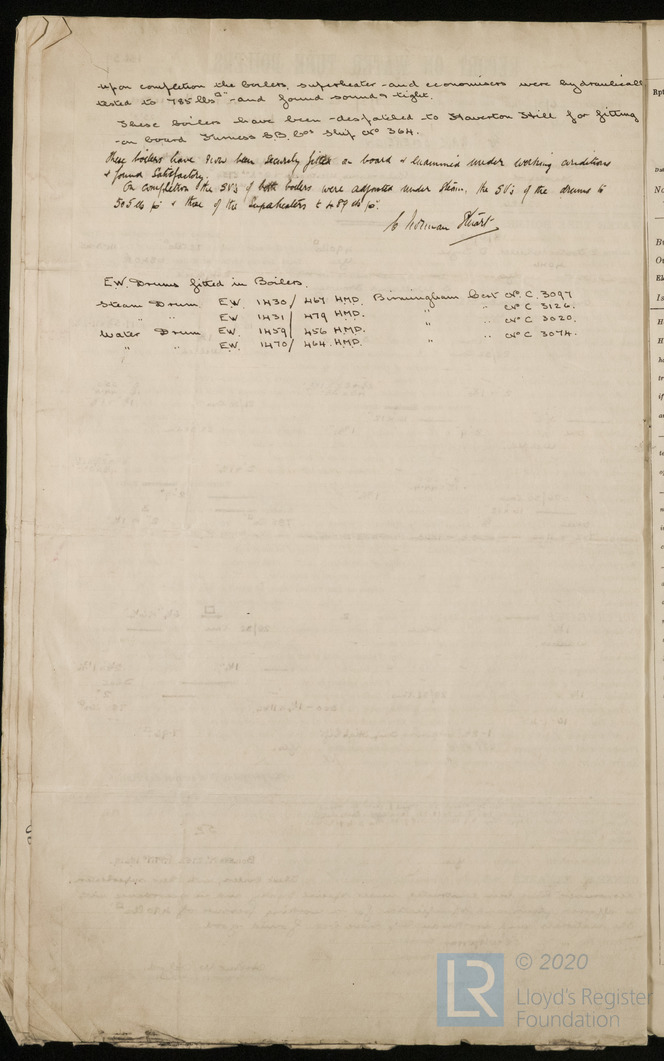 upon completion the boilers, superheater and economisers were hydraulically
tested to 785 lbs □" and found sound & tight.
These boilers have been despatched to Haverton Hill for fitting
on board Furness S.B. Cos Ship No 364.
These boilers have now been securely fitted on board & examined under working conditions
& found Satisfactory.
On completion the SV's of both boilers were adjusted under Steam, the SV's of the drums to
505 lb & those of the Superheaters to 489 lb
C Norman Stuart
E.W. Drums fitted in Boilers.
Steam Drum E.W. 1430/467 HMD. Birmingham Cert No C. 3097
" " E.W. 1431/479 HMD. " " No C 3126.
Water Drum E.W. 1459/456 HMD. " " No C 3020.
" " E.W. 1470/464 HMD. " " No C 3074.
Rpt
© 2020
LR
Lloyd's Register
Foundation